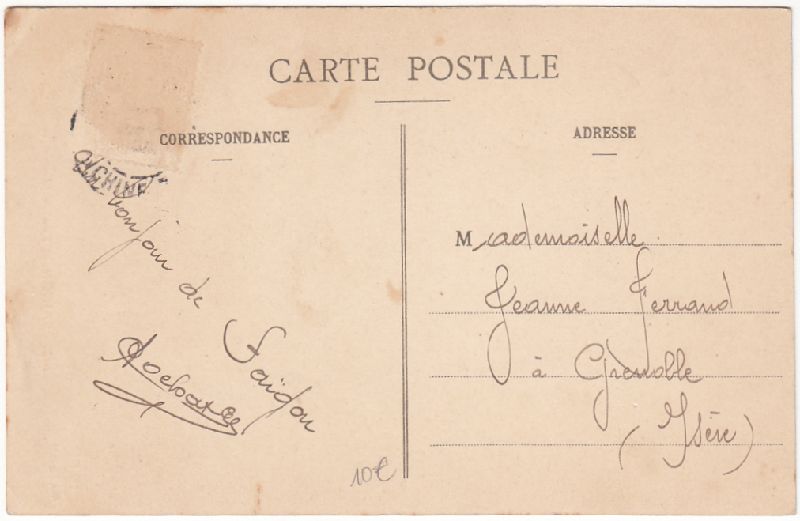 CARTE POSTALE
CORRESPONDANCE
ADRESSE
CHINE
bonjour de Saïgon
Mademoiselle
Jeanne Ferrand
à Grenoble
(Isère)
10€